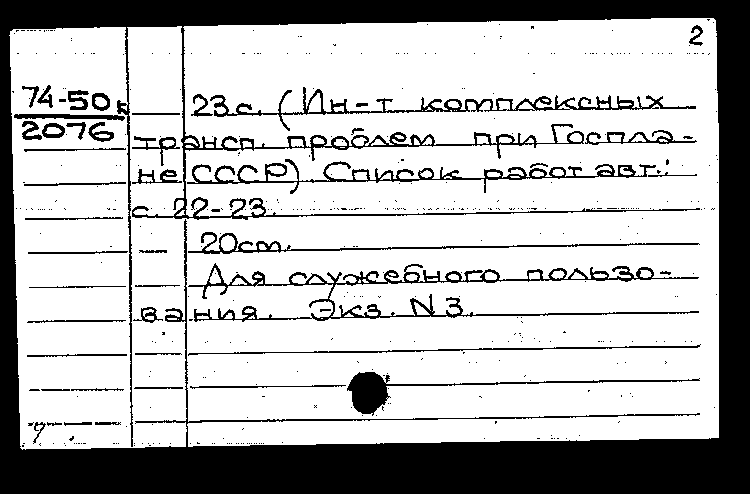 2
74-50к 23 с. (Ин-т комплексных
2076 трансп. проблем при Госпла-
не СССР). Список работ авт.:
с. 22-23.
— 20 cm.
Для служебного пользо-
вания. Экз. N 3.